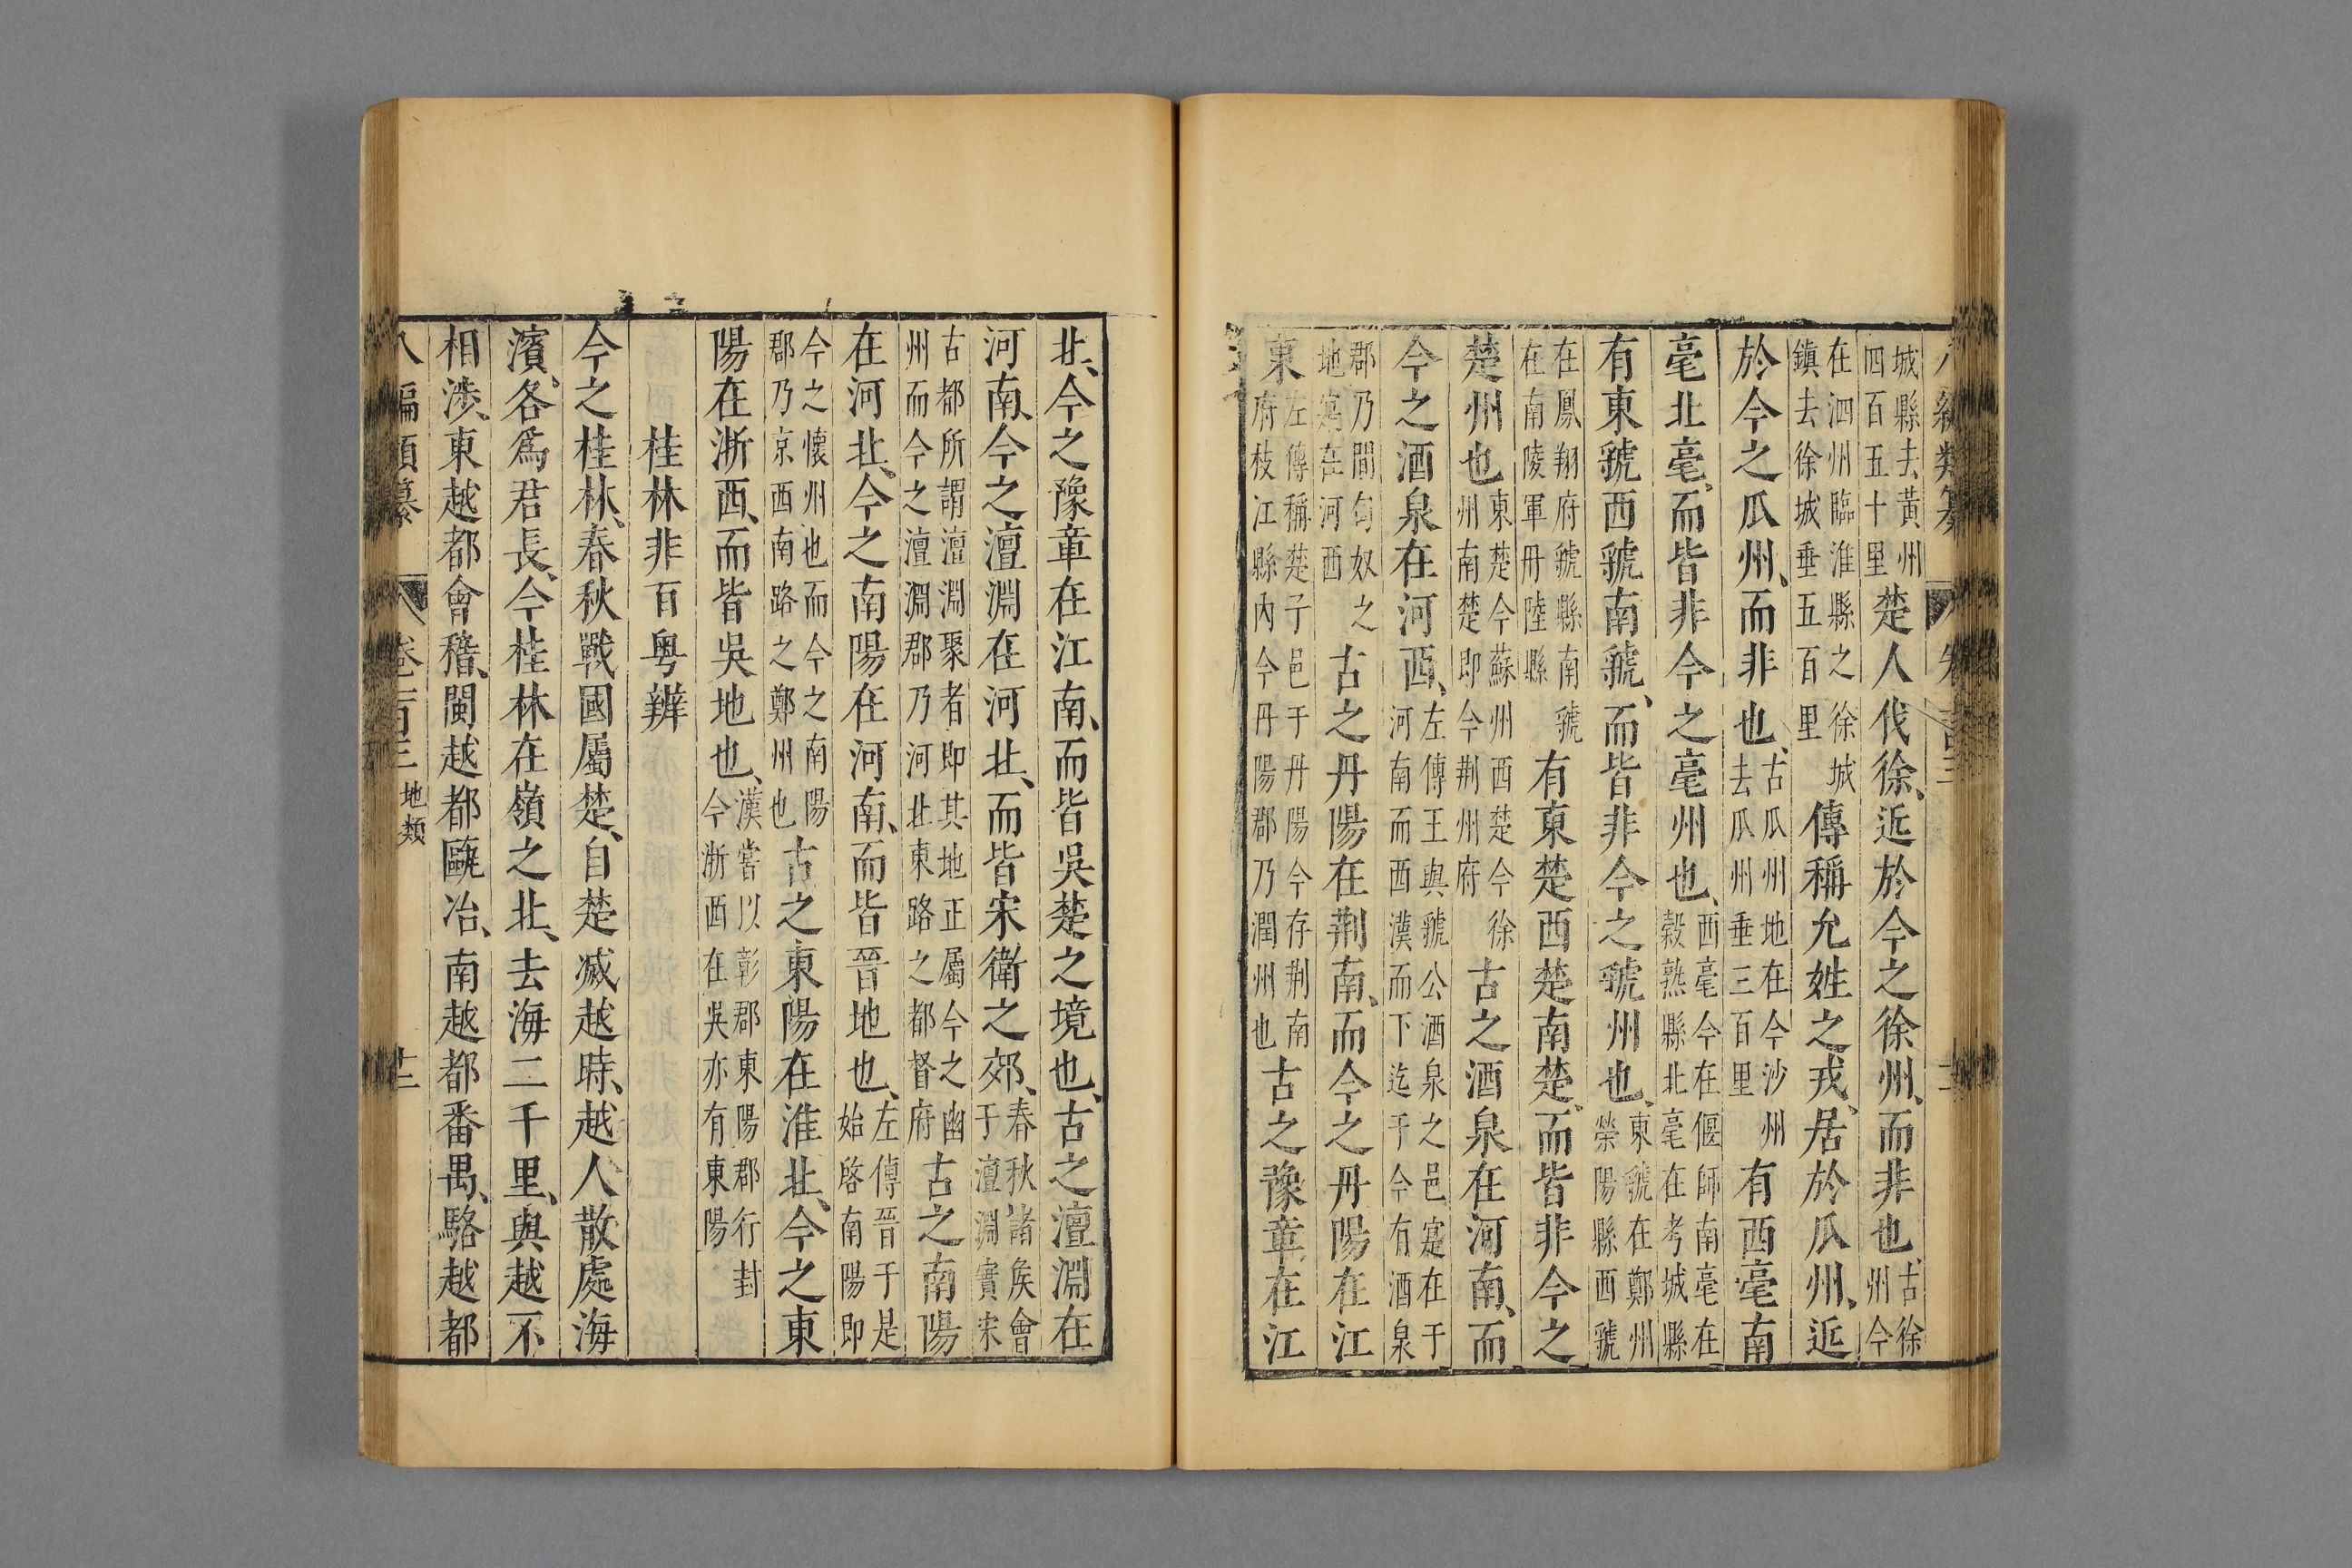 城縣去黃州四百五十里楚人伐徐、近於今之徐州、而非也、古徐州今
在泗州臨淮縣之徐城鎮去徐城垂五百里傳稱允姓之戎、居於瓜州、近
於今之瓜州、而非也、古瓜州地在今沙州去瓜州垂三百里有西亳南
亳北亳、而皆非今之亳州也、西亳今在偃師南亳在穀熟縣北亳在考城縣
有東虢西虢南虢、而皆非今之虢州也、東虢在鄭州滎陽縣西虢
在鳳翔府虢縣南虢在南陵軍丹陸縣有東楚西楚南楚、而皆非今之
楚州也東楚今蘇州西楚今徐州南楚即今荆州府古之酒泉在河南、而
今之酒泉在河西、左傳王與虢公酒泉之邑寔在于河南而西漢而下迄于今有酒泉
郡乃間匈奴之地寔在河西古之丹陽在荆南、而今之丹陽在江
東左傳稱楚子邑于丹陽今存荆南府枝江縣內今丹陽郡乃潤州也古之豫章在江
北、今之豫章在江南、而皆吳楚之境也、古之澶淵在
河南、今之澶淵在河北、而皆宋衛之郊、春秋諸矦會于澶淵實宋
古都所謂澶淵聚者即其地正屬今之幽州而今之澶淵郡乃河北東路之都督府古之南陽
在河北、今之南陽在河南、而皆晉地也、左傳晉于是始啓南陽即
今之懷州也而今之南陽郡乃京西南路之鄭州也古之東陽在淮北、今之東
陽在浙西、而皆吳地也、漢嘗以彰郡東陽郡行封今浙西在吳亦有東陽
桂林非百粵辨
今之桂林、春秋戰國屬楚、自楚滅越時、越人散處海
濱、各爲君長、今桂林在嶺之北、去海二千里、與越不
相涉、東越都會稽、閩越都甌冶、南越都番禺、駱越都
八編類纂 卷一百三 地類 廿二